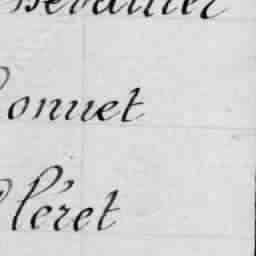 hevallier
onuet
léret